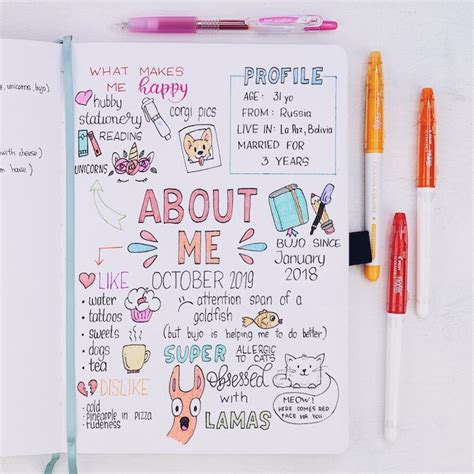 unicorns, bujo)
with cheese)
WHAT MAKES
ME happy
hubby
stationery
READING
UNICORNS
corgi pics
PROFILE
AGE: 31 yo
FROM: Russia
LIVE IN: La Paz, Bolivia
MARRIED FOR
3 YEARS
ABOUT
ME
OCTOBER 2019
BUJO SINCE
January
2018
LIKE
• water
• tattoos
• sweets
• dogs
• tea
attention span of a
goldfish
(but bujo is helping me to do better)
SUPER ALLERGIC
TO CATS
DISLIKE
• cold
• pineapple in pizza
• rudeness
obsessed
with
LAMAS
MEOW!
HERE COMES RED
FACE FOR YOU